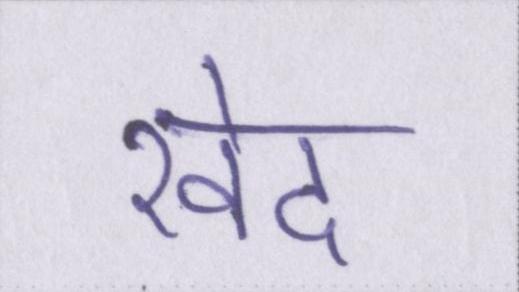 खेद